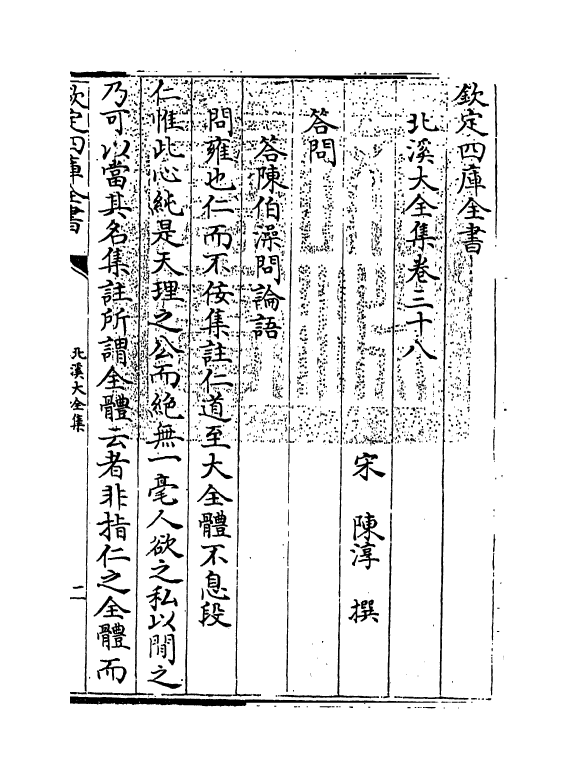 欽定四庫全書
北溪大全集卷三十八
宋 陳淳 撰
答問
答陳伯澡問論語
問雍也仁而不佞集註仁道至大全體不息段
仁惟此心純是天理之公而絶無一毫人欲之私以間之
乃可以當其名集註所謂全體云者非指仁之全體而
欽定四庫全書
北溪大全集